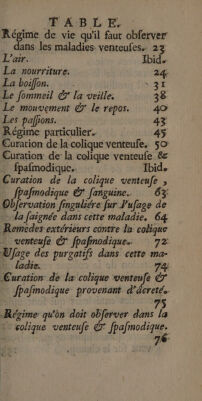 TABLE.
Régime de vie qu'il faut observer
dans les maladies venteuses. 23
L'air. Ibid.
La nourriture. 24
La boisson. 31
Le sommeil & la veille. 38
Le mouvement & le repos. 40
Les passions. 43
Régime particulier. 45
Curation de la colique venteuse. 50
Curation de la colique venteuse &
spasmodique. Ibid.
Curation de la colique venteuse,
spasmodique & sanguine. 63
Observation singuliére sur l'usage de
la saignée dans cette maladie. 64
Remedes extérieurs contre la colique
venteuse & spasmodique. 72
Usage des purgatifs dans cette ma-
ladie. 74
Curation de la colique venteuse &
spasmodique provenant d'âcreté.
75
Régime qu'on doit observer dans la
colique venteuse & spasmodique.
76